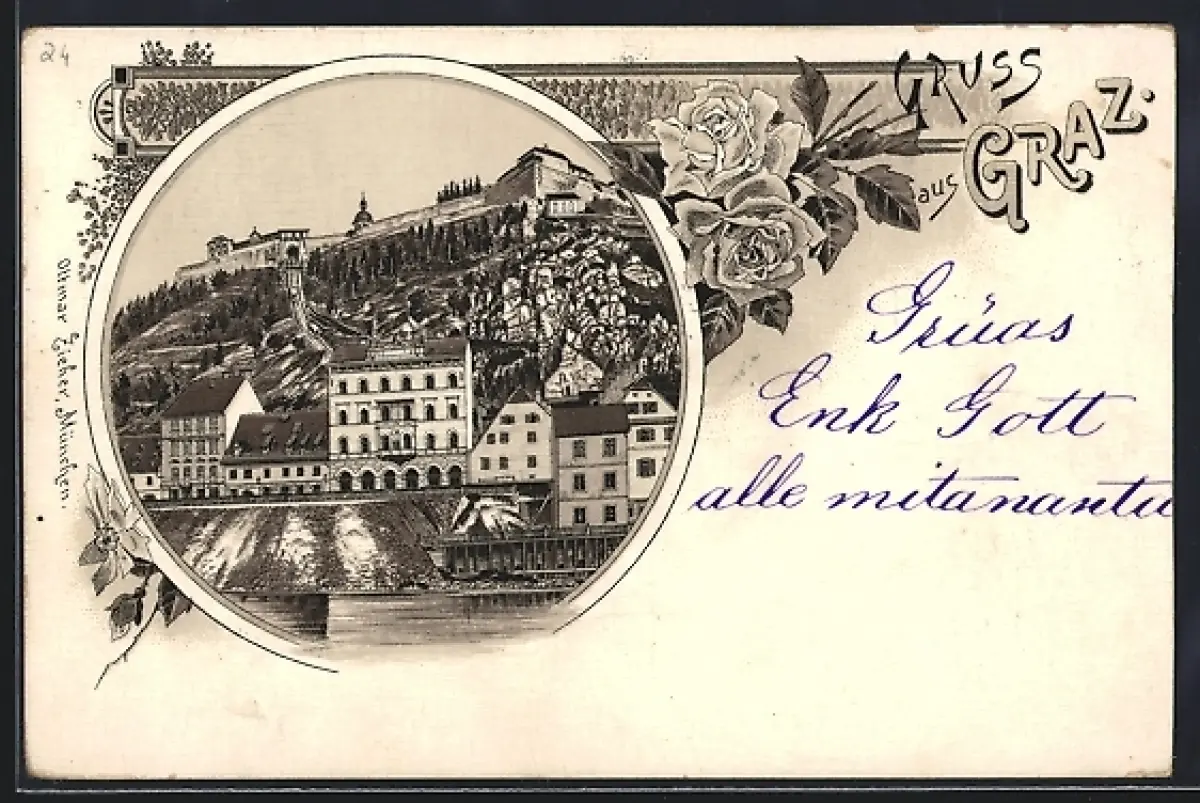 24
GRUSS
aus
GRAZ.
Ottmar Zieher, München.
Grüas
Enk Gott
alle mitanantu